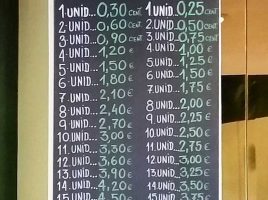 1·UNID...0,30 CENT 1 UNID...0,25 CENT
2·UNID...0,60 CENT 2·UNID...0,50 CENT
3·UNID...0,90 CENT 3·UNID...0,75 CENT
4·UNID...1,20 € 4·UNID...1,00 €
5·UNID...1,50 € 5·UNID...1,25 €
6·UNID...1,80 € 6·UNID...1,50 €
7·UNID...2,10 € 7·UNID...1,75 €
8·UNID...2,40 € 8·UNID...2,00 €
9·UNID...2,70 € 9·UNID...2,25 €
10 UNID...3,00 € 10 UNID...2,50 €
11 UNID...3,30 € 11 UNID...2,75 €
12 UNID...3,60 € 12 UNID...3,00 €
13 UNID...3,90 € 13 UNID...3,25 €
14 UNID...4,20 € 14 UNID...3,50 €
15 UNID...4,50 € 15 UNID...3,75 €